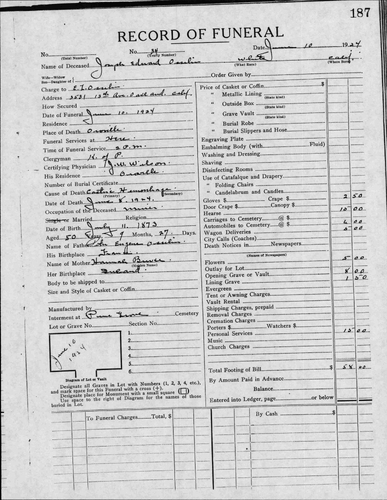 187
RECORD OF FUNERAL
No. No. 24 Date June 10 1924
(Total Number) (Yearly Number)
Name of Deceased Joseph Edward White Calif.
(What Race) (Where Born)
Wife—Widow
Son—Daughter of
Charge to
Address
How Secured
Date of Funeral June 10, 1924
Residence
Place of Death Oroville
Funeral Services at Here
Time of Funeral Service 2 P.M.
Clergyman K. of P.
Certifying Physician J.W. Wilson
His Residence Oroville
Number of Burial Certificate
Cause of Death Hemorrhage
(Primary) (Secondary)
Date of Death June 8, 1924
Occupation of the Deceased Miner
Single or Married Religion
Date of Birth July 11, 1873
Aged 50 Years, 9 Months, 27 Days.
Name of Father Eugene
His Birthplace France
Name of Mother Hannah
(Maiden Name)
Her Birthplace
Body to be shipped to
Size and Style of Casket or Coffin
Manufactured by
Interment at Pine Grove Cemetery
Lot or Grave No. Section No.
June 10
1924
1.
2.
3.
4.
5.
6.
Diagram of Lot or Vault
Designate all Graves in Lot with Numbers (1, 2, 3, 4, etc.),
and mark space for this Funeral with a cross (+).
Designate place for Monument with a small square
Use space to right of Diagram for the names of those
buried in Lot.
Order Given by
Price of Casket or Coffin
" Metallic Lining
(State kind)
" Outside Box
(State kind)
" Grave Vault
(State kind)
" Burial Robe
" Burial Slippers and Hose
Engraving Plate
Embalming Body (with Fluid)
Washing and Dressing
Shaving
Disinfecting Rooms
Use of Catafalque and Drapery
" Folding Chairs
" Candelabrum and Candles
Gloves $ Crape $ 2 50
Door Crape $ Canopy $
Hearse 10 00
Carriages to Cemetery @ $
Automobiles to Cemetery @ $
Wagon Deliveries 5 00
City Calls (Coaches)
Death Notices in Newspapers
(Names of Newspapers)
Flowers 5 00
Outlay for Lot
Opening Grave or Vault 8 00
Lining Grave
Evergreen
Tent or Awning Charges
Vault Rental
Shipping Charges, prepaid
Removal Charges
Cremation Charges
Porters $ Watchers $
Personal Services 15 00
Music
Church Charges
Total Footing of Bill $
By Amount Paid in Advance
Balance
Entered into Ledger, page or below
To Funeral Charges Total $ By Cash $